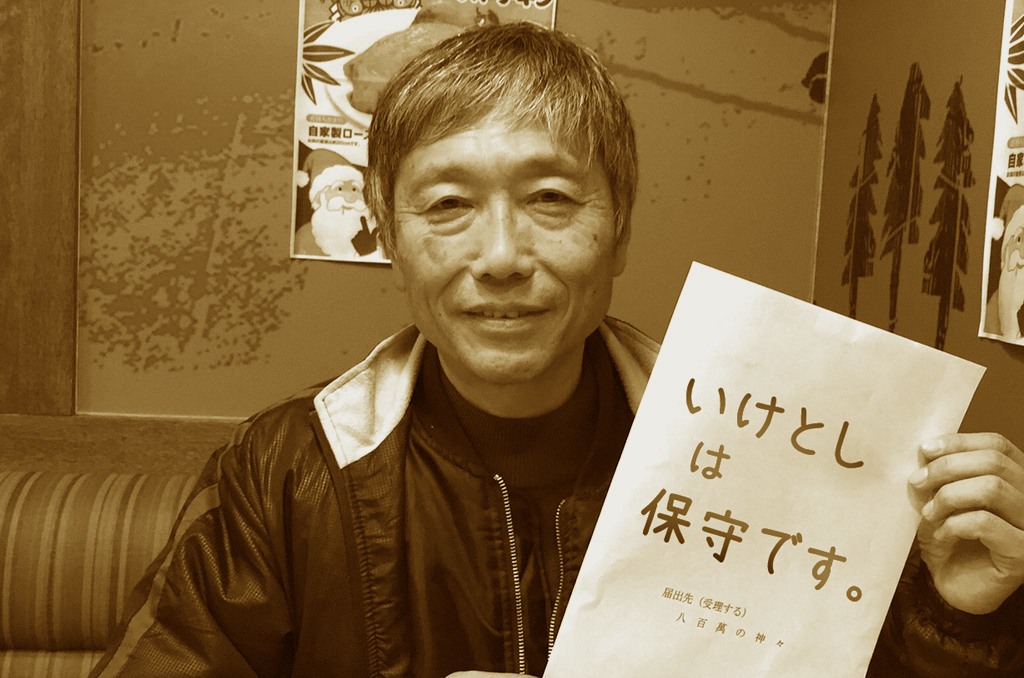 自家製ロース
いけとし
は
保守です。
届出先（受理する）
八百萬の神々